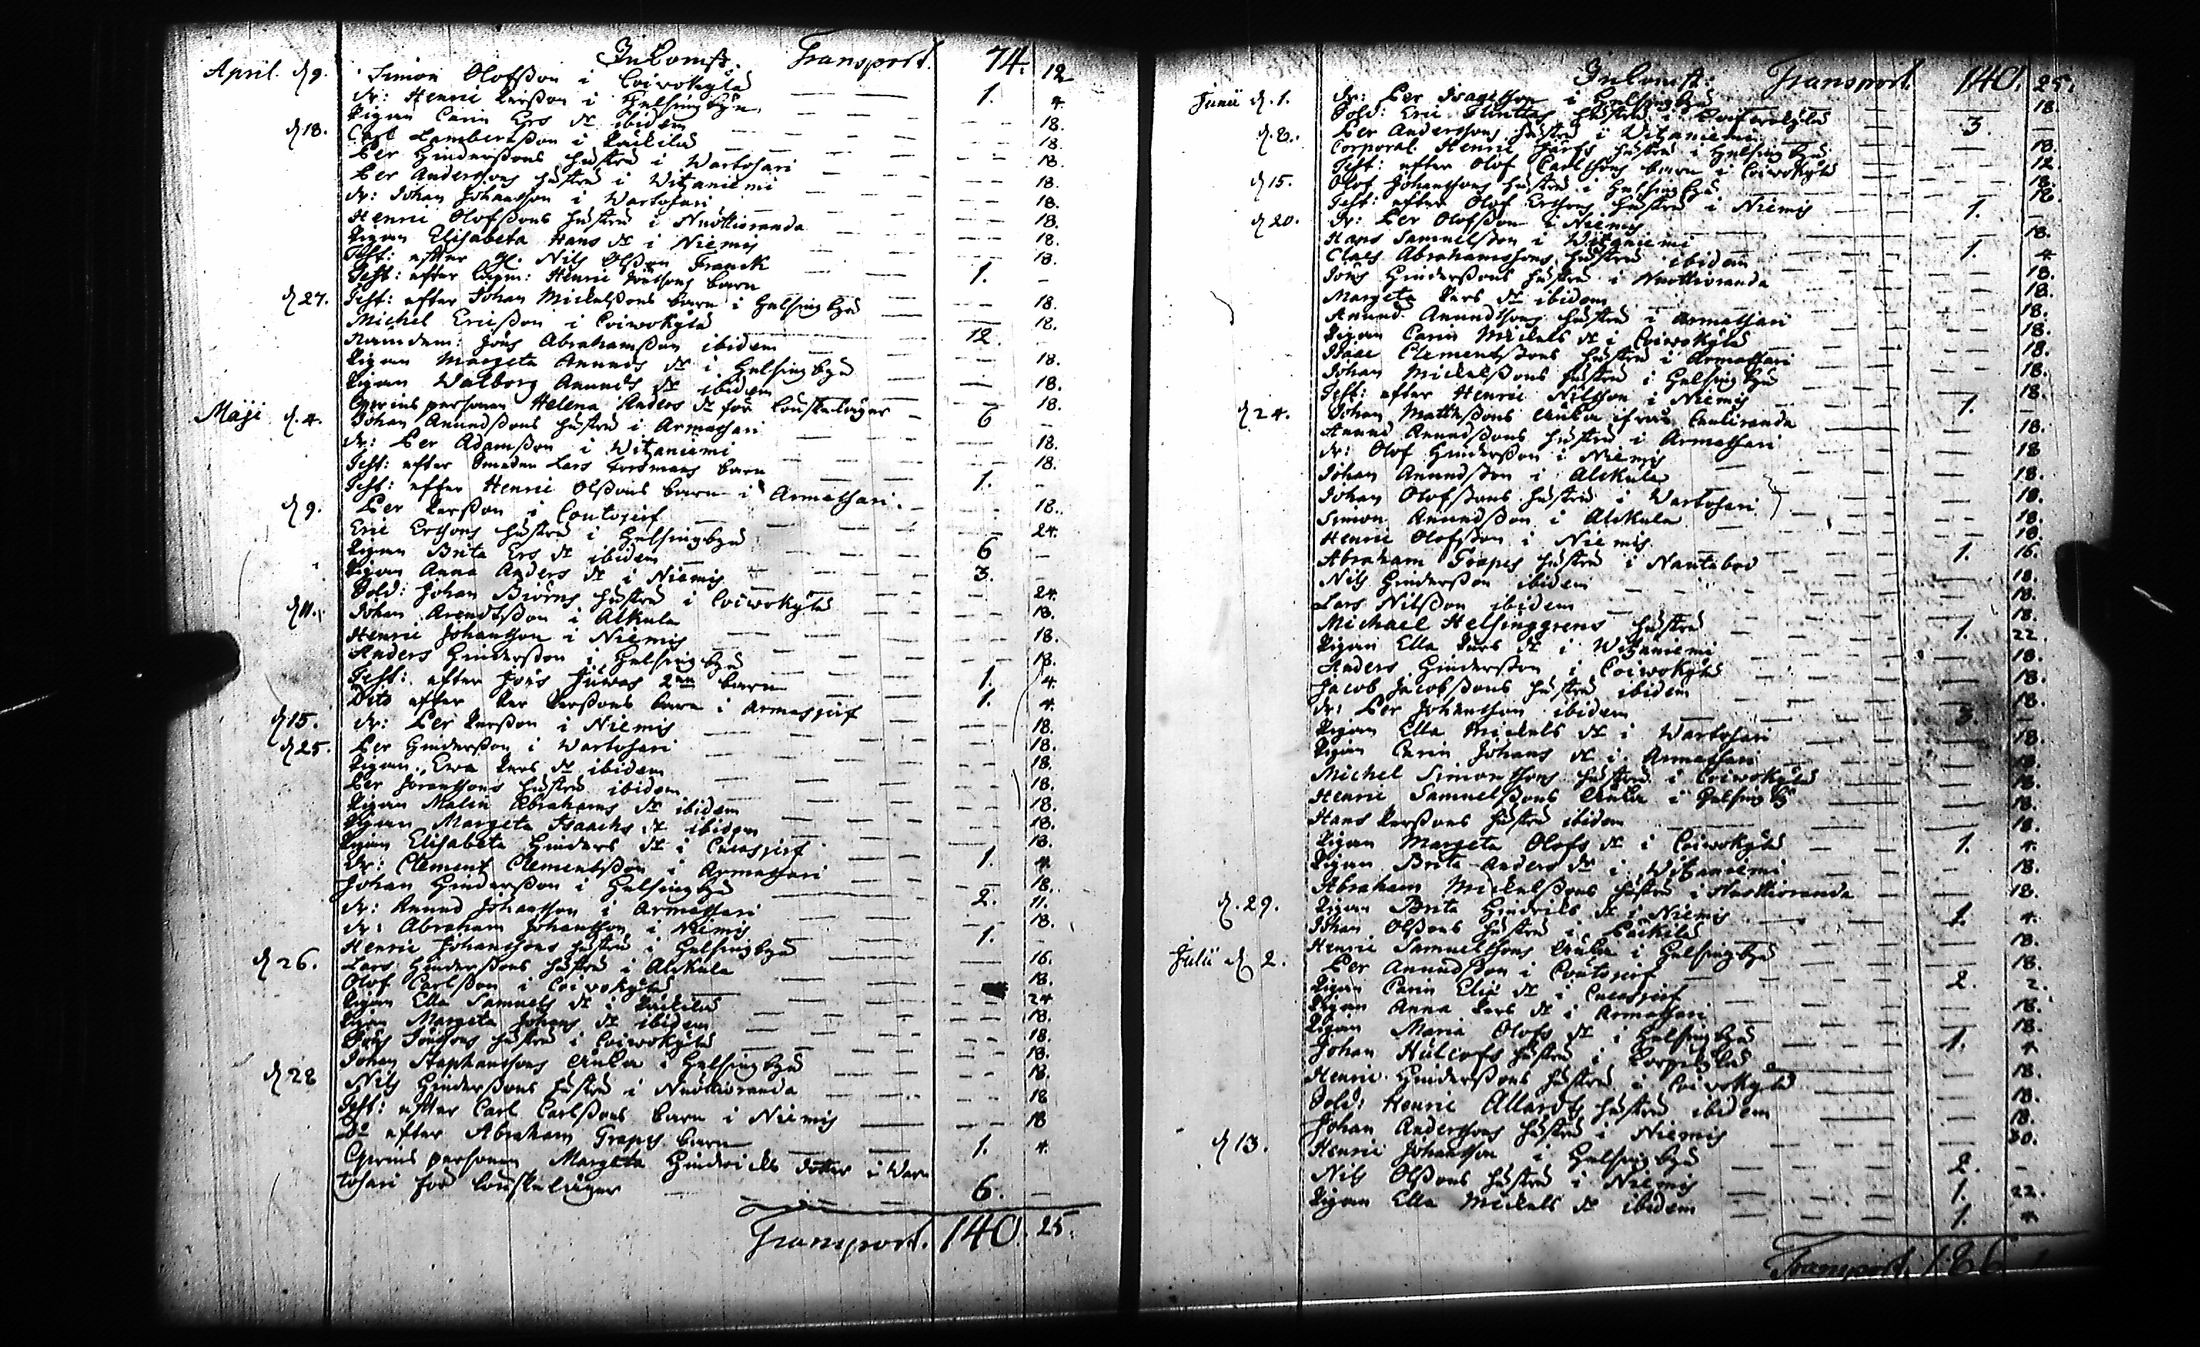 Inkomst. Transport. 74. 12
April d 9. Simon Olofsson i Coivokylä
dr: Henric Persson i Helsingbyn 1. 4.
Pigan Carin Ers dr ibidem 18.
d 18. Carl Lambertsson i Päckilä 18.
Per Hinderssons hustru i Wartosari 18.
Per Anderssons hustru i Witzaniemi 18.
dr: Johan Johansson i Wartosari 18.
Henric Olofssons hustru i Nuottioranda 18.
Pigan Elisabeta Hans dr i Niemis 18.
Test: efter Nils Olsson Franck 18.
Test: efter Henric barn 1. —
d 27. Test: efter Johan Mickelssons barn i Helsingbyn 18.
Michel Ericsson i Coivokylä 18.
Nämdem: Jöns Abrahamsson ibidem 12. —
Pigan Margeta Anunds dr i Helsingbyn 18.
Pigan Walborg Anunds dr ibidem 18.
personen Helena Anders dr för 18.
Maji d. 4. Johan Anundssons hustru i Armassari 6 —
dr: Per Adamsson i Witzaniemi 18.
Test: efter Lars barn 18.
Test: efter Henric Olssons barn i Armassari. 1. —
d 9. Per Persson i Coutojerf 18.
Eric Ersons hustru i Helsingbyn 24.
Pigan Brita Ers dr ibidem 6 —
Pigan Anna Anders dr i Niemis 3. —
Sold: Johan Biörns hustru i Coivokylä 24.
d 11. Johan Arendtsson i Alkula 18.
Henric Johansson i Niemis 18.
Anders Hindersson i Helsingbyn 18.
Test: efter Jöns barn 1. 4.
Dito efter Per Perssons barn i Armasjerf 1. 4.
d 15. dr: Per Persson i Niemis 18.
d 25. Per Hindersson i Wartosari 18.
Pigan Ewa Pers dr ibidem 18.
Per Joranssons hustru ibidem 18.
Pigan Malin Abrahams dr ibidem 18.
Pigan Margeta Isaachs dr ibidem 18.
Pigan Elisabeta Hinders dr i 18.
Dr: Clement Clementsson i Armassari 1. 4.
Johan Hindersson i Helsingbyn 18.
dr: Anund Johansson i Armassari 2. 11.
dr: Abraham Johansson i Niemis 18.
Henric Johanssons hustru i Helsingbyn 1. —
d 26. Lars Hinderssons hustru i Alkula 16.
Olof Carlsson i Coivokylä 18.
Pigan Ella Samuels dr i Päckilä 24
Pigan Margeta Johans dr ibidem 18.
hustru i Coivokylä 18.
Johan Staphanssons Enka i Helsingbyn 18.
d 28 Nils Hinderssons hustru i Nuottioranda 18.
Test: efter Carl Carlssons barn i Niemis 18
Do efter Abraham Grapes barn 18
personen Margeta Hindrichs dotter i War 1. 4.
tosari för 6. —
Transport. 140. 25.
Inkomst: Transport 140. 25.
Junii d. 1. dr: Per Isacsson i Helsingbyn 18.
Sold: Eric hustru i 3. —
d 8. Per Anderssons hustru i Witzaniemi 18.
Corporal Henric hustru i Helsingbyn 12.
Test: efter Olof Carlssons barn i Coivokylä 18.
d 15. Olof Johanssons hustru i Helsingbyn 18.
Test: efter Olof Erssons hustru i Niemis 1. —
d 20. dr: Per Olofsson i Niemis 18.
Hans Samuelsson i Witzaniemi 1. 4
Claes Abrahamssons hustru ibidem 18.
Jöns Hinderssons hustru i Nuottioranda 18.
Margeta Pers dr ibidem 18.
Anund Anundssons hustru i Armassari 18.
Pigan Carin Mickels dr i Coivokylä 18.
Isaac Clementssons hustru i Armassari 18.
Johan Mickelssons hustru i Helsingbyn 18.
Test: efter Henric Nilsson i Niemis 1. —
d 24. Johan Mattssons Enka ifrån 18.
Anund Anundssons hustru i Armassari 18
dr: Olof Hindersson i Niemis 18.
Johan Anundsson i Alkula 18.
Johan Olofssons hustru i Wartosari 18.
Simon Anundsson i Alkula 18.
Henric Olofsson i Niemis 1. 16.
Abraham Grapes hustru i Nautabod 18.
Nils Hindersson ibidem 18.
Lars Nilsson ibidem 18.
Michael Helsinggrens hustru 1. 22.
Pigan Ella Pers dr i Witzaniemi 18.
Anders Hindersson i Coivokylä 18.
Jacob Jacobssons hustru ibidem 18.
dr: Per Johansson ibidem 3. —
Pigan Ella Mickels dr i Wartosari 18.
Pigan Carin Johans dr i Armassari 18.
Michel Simonssons hustru i Coivokylä 18.
Henric Samuelssons Enka i Helsingby 18.
Hans Perssons hustru ibidem 18.
Pigan Margeta Olofs dr i Coivokylä 1. 4.
Pigan Brita Anders dr i Witzaniemi 18.
Abraham Mickelssons hustru i Nuottioranda 18.
d. 29. Pigan Brita Hindrichs dr i Niemis 1. 4.
Johan Olssons hustru i Päckilä 18.
Henric Samuelssons Enka i Helsingbyn 18.
Julii d 2. Per Anundsson i Coutojerf 2. 2.
Pigan Carin Elie dr i 18.
Pigan Anna Pers dr i Armassari 18.
Pigan Maria Olofs dr i Helsingbyn 1. 4
Johan hustru i Corpikylä 18.
Henric Hinderssons hustru i Coivokylä 18.
Sold: Henric Allards hustru ibidem 18.
Johan Anderssons hustru i Niemis 30.
d 13. Henric Johansson i Helsingbyn 2. —
Nils Olssons hustru i Niemis 1. 22.
Pigan Ella Mickels dr ibidem 1. 4
Transport. 186